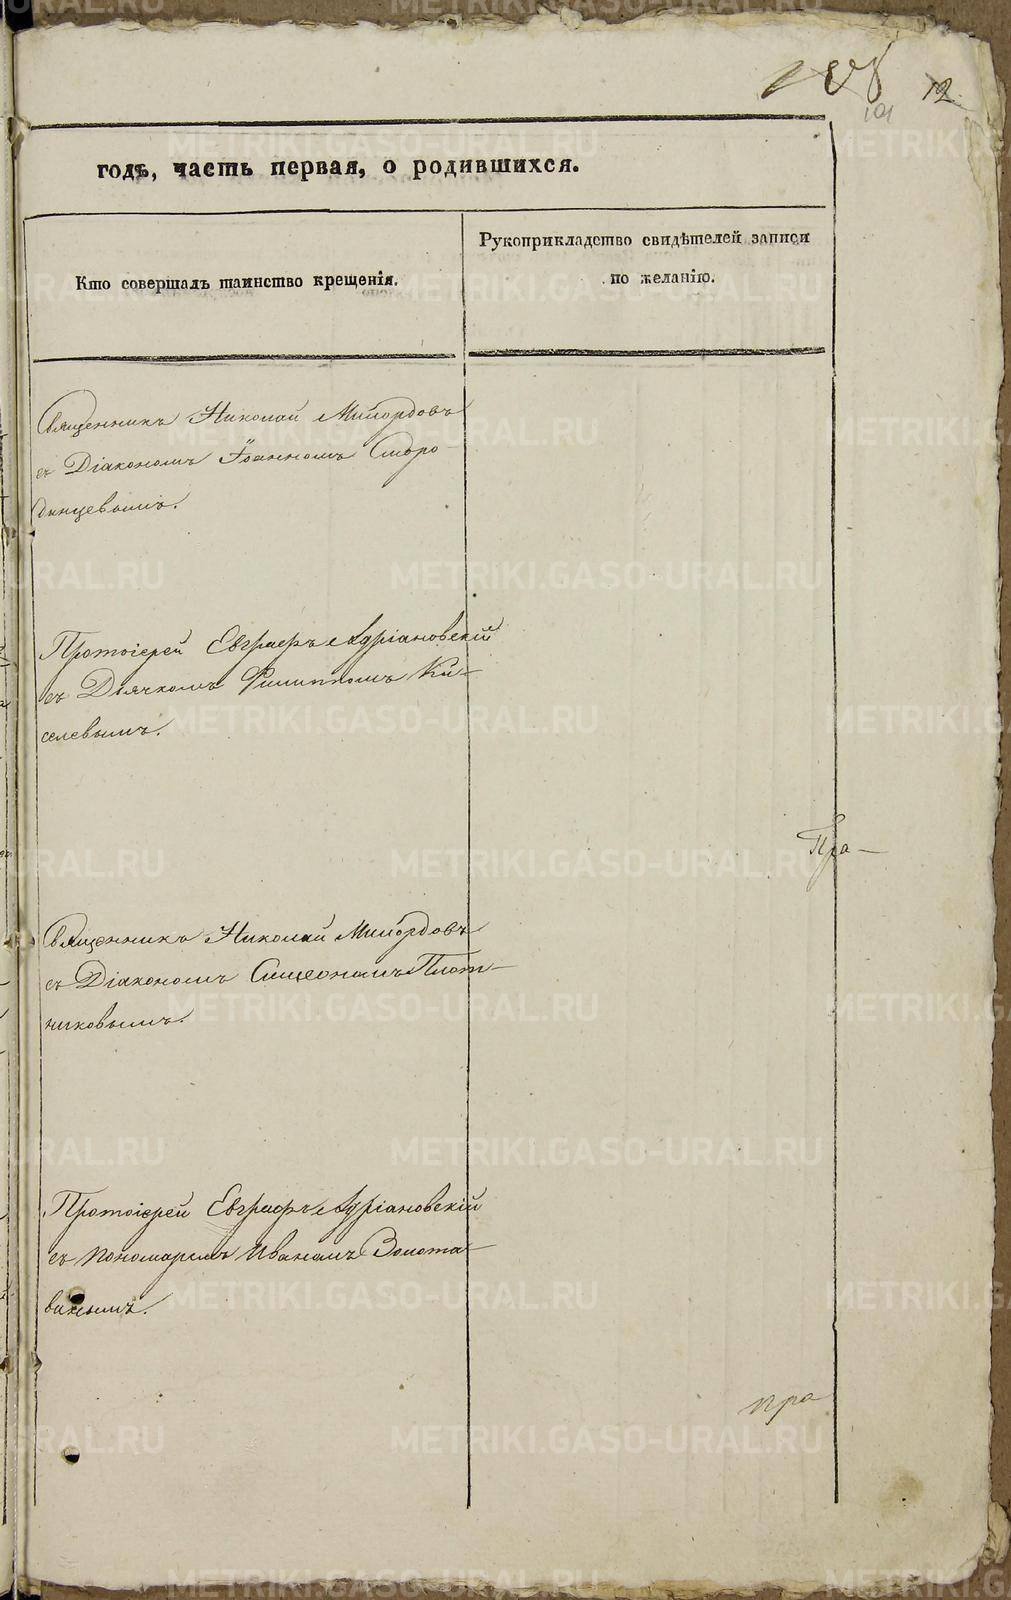 12.
101
годъ, часть первая, о родившихся.
Кто совершалъ таинство крещенія.
Рукоприкладство свидѣтелей записи
по желанію.
Священникъ Николай Милордовъ
съ Діакономъ Іоанномъ Сторо-
дынцевымъ.
Протоіерей Евграфъ Адріановскій
съ Дьячкомъ Филиппомъ Ки-
селевымъ.
Пра-
Священникъ Николай Милордовъ
съ Діакономъ Симеономъ Плот-
никовымъ.
Протоіерей Евграфъ Адріановскій
съ пономаремъ Иваномъ Золота-
винымъ.
пра
METRIKI.GASO-URAL.RU